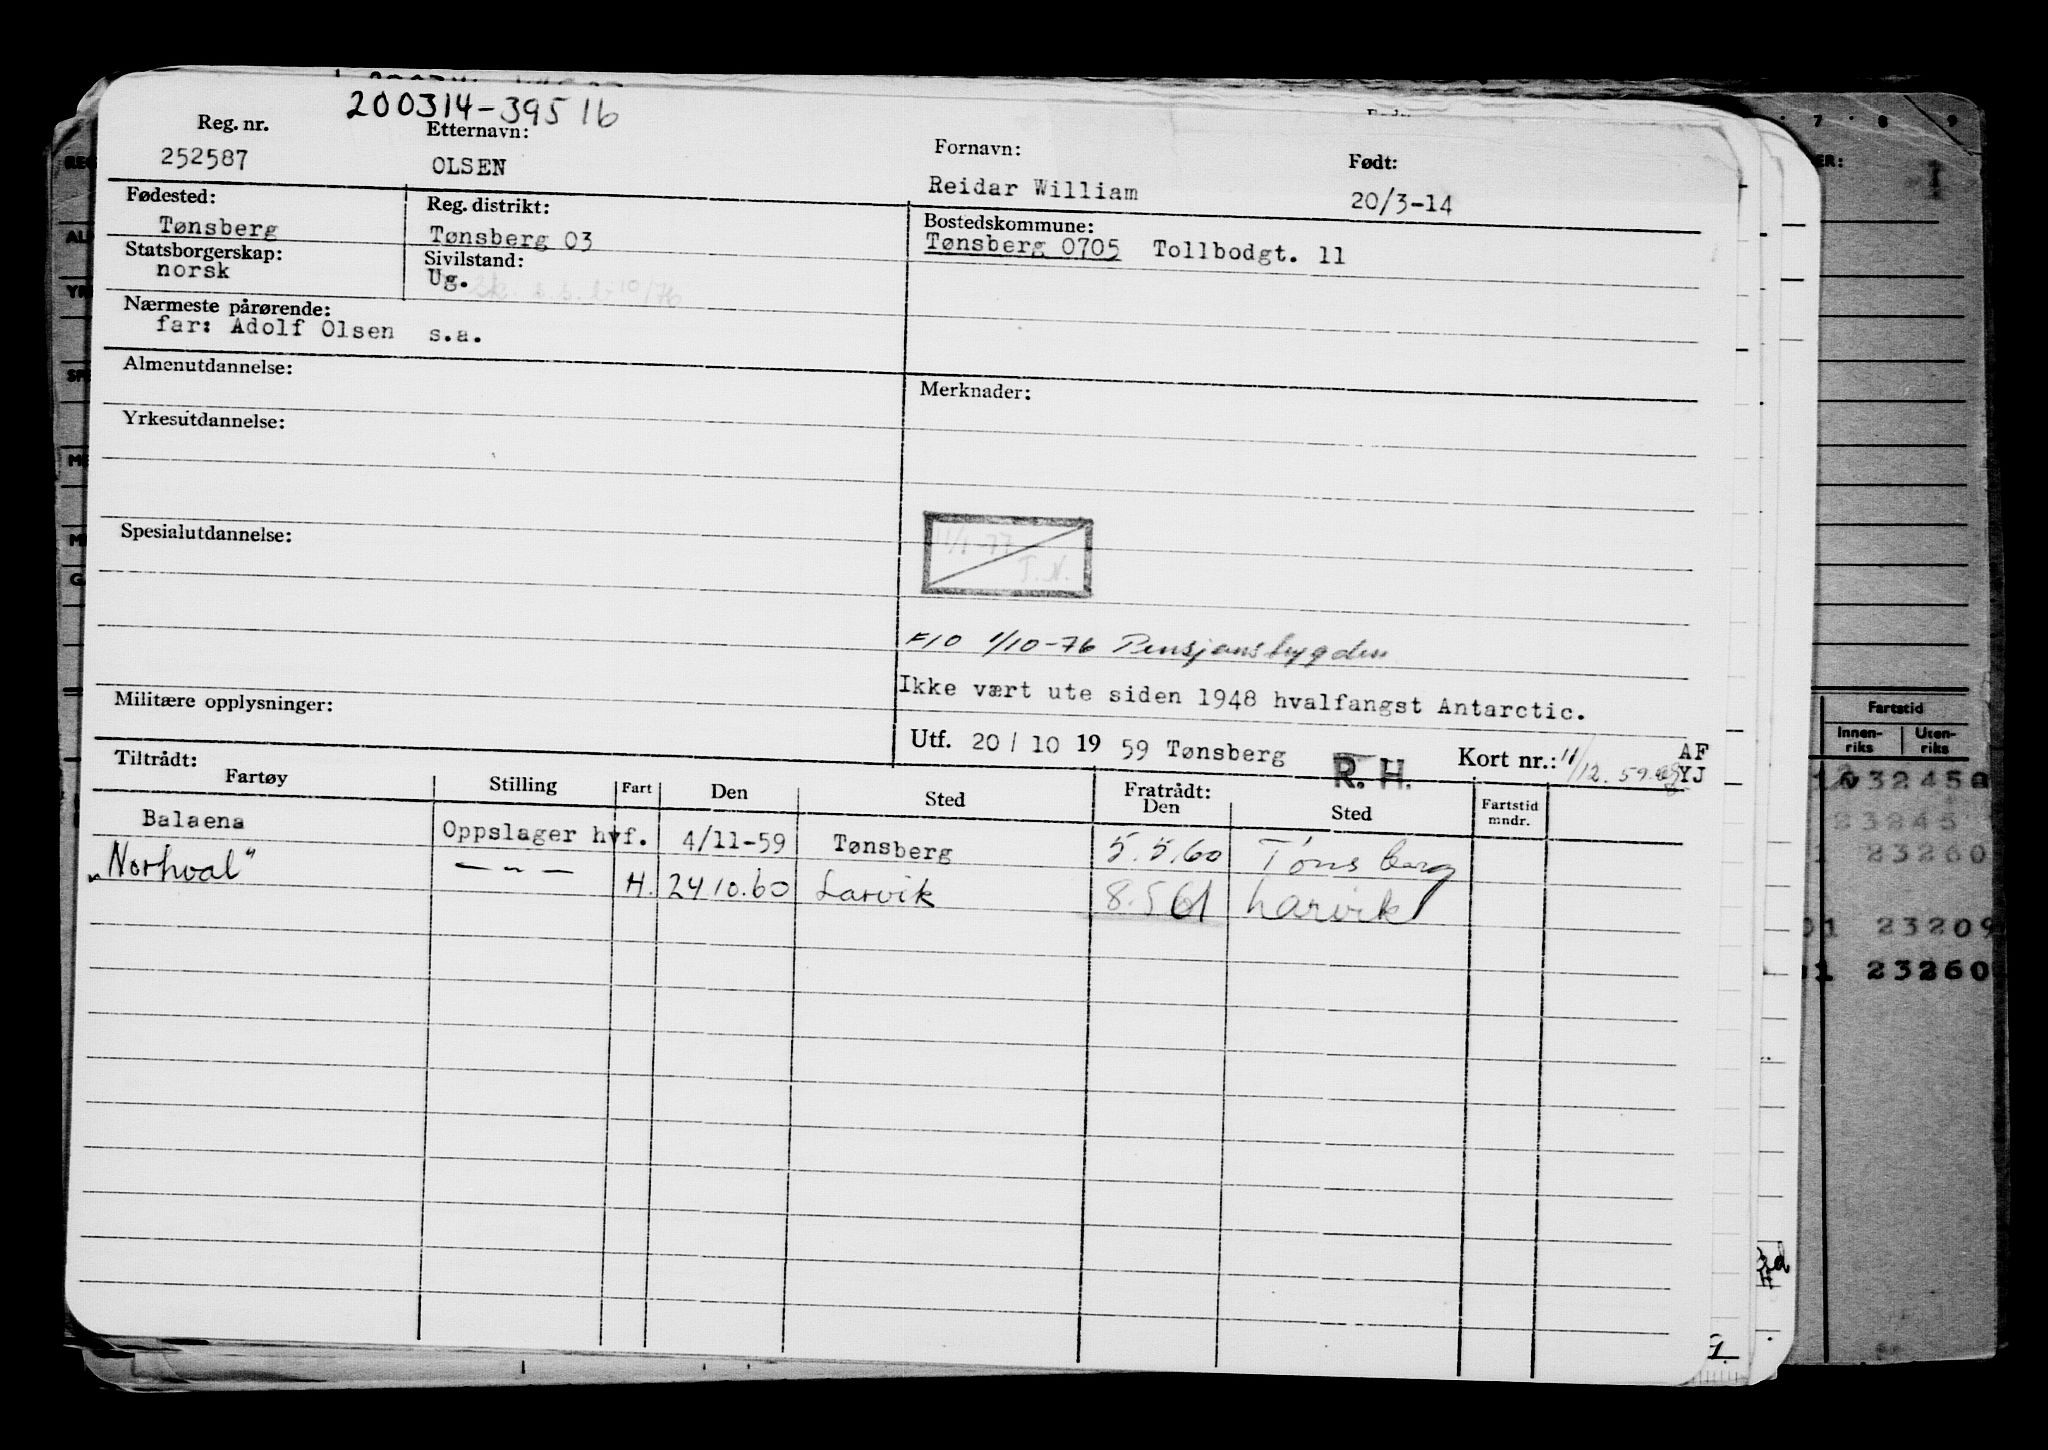 200314-39516
Reg. nr. Etternavn: Fornavn: Født:
252587 OLSEN Reidar William 20/3-14
Fødested: Reg. distrikt: Bostedskommune:
Tønsberg Tønsberg 03 Tønsberg 0705 Tollbodgt. 11
Statsborgerskap: Sivilstand:
norsk Ug.
Nærmeste pårørende:
far: Adolf Olsen s.a.
Almenutdannelse: Merknader:
Yrkesutdannelse:
Spesialutdannelse:
11/1-77
T.N.
F10 1/10-76 Pensjonstrygden
Ikke vært ute siden 1948 hvalfangst Antarctic.
Militære opplysninger:
Utf. 20 / 10 19 59 Tønsberg R. H. Kort nr.: 11/12.59 AF
YJ
Tiltrådt: Fratrådt:
Fartøy Stilling Fart Den Sted Den Sted Fartstid mndr.
Balaena Oppslager hvf. 4/11-59 Tønsberg 5.5.60 Tønsberg
"Norhval" — " — H. 24 10.60 Larvik 8.5 61 Larvik
7 8 9
ER: I
Fartstid
Innen-riks Uten-riks
32450
23245
23260
01 23209
01 23260